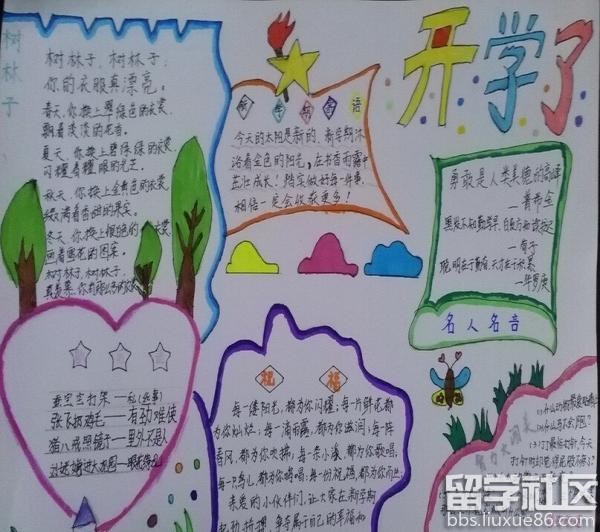 开学了
树林子
树林子、树林子,
你的衣服真漂亮。
春天,你换上翠绿色的衣裳
飘着淡淡的花香。
夏天,你换上翠绿绿的衣裳
闪耀着耀眼的光芒。
秋天,你换上金黄色的衣裳
缀满着香甜的果实。
冬天,你换上银色的衣裳
画着雪花的图案。
树林子、树林子、
新学期寄语
今天的太阳是新的,新学期沐
浴着金色的阳光,在书香雨露中
茁壮成长!踏实做好每一件事,
相信一定会收获更多!
勇敢是人类美德的高峰
—普希金
黑发不知勤学早,白首方知读书迟
—荀子
聪明在于勤奋,天才在于积累
—华罗庚
名人名音
蚕宝宝打架——私(丝)事
张飞抓鸡毛——有劲难使
猪八戒照镜子——里外不是人
刘姥姥进大观园——眼花缭乱
祝福
每一缕阳光,都为你闪耀;每一片鲜花都
为你灿烂;每一滴雨露,都为你滋润;每一阵
春风,都为你吹拂;每一条小溪,都为你歌唱,
每一只鸟儿,都为你鸣唱;每一份祝福,都为你而出
亲爱的小伙伴们,让大家在新学期
智力大闯关
留学社区
bbs.liuxue86.com